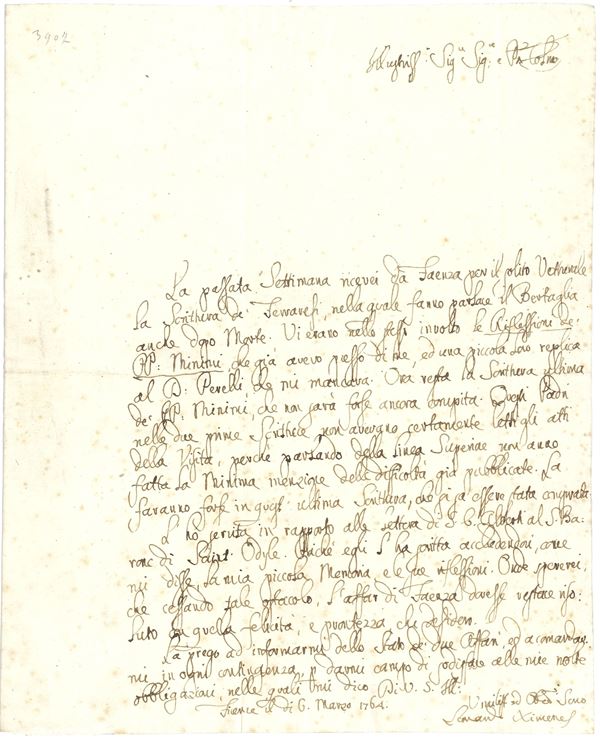 3902
Sig.re Sig.re e
La passata Settimana ricevei da Faenza per il solito Vetturale
la Scrittura de' Ferraresi, nella quale fanno parlare il Bertaglia
anche dopo Morte. Vi erano nello stesso involto le Riflessioni de'
PP: Minimi, che già avevo presso di me, ed una piccola loro replica
al P: Perelli che mi mancava. Ora resta la Scrittura ultima
de' PP: Minimi, che non sarà forse ancora compita. Questi Padri
nelle due prime Scritture non avevano certamente letti gli atti
della Visita, perche parlando della linea Superiore non anno
fatta la Minima menzione delle difficoltà già pubblicate. La
faranno forse in quest' ultima Scrittura, che già essere stata
L' ho servita in rapporto alle lettera di S. E. al S. Ba:
rone di Saint Odyle. Anche egli l' ha scritta come
mi disse, la mia piccola Memoria, e le sue riflessioni. Onde spererei,
che cessando tale ostacolo, l' affar di Faenza dovesse restare riso:
luto con quella felicità, e prontezza che desidero.
La prego ad informarmi dello Stato de' due Affari, ed a comandar:
mi in ogni contingenza, p darmi campo di sodisfare alle mie molte
obbligazioni, nelle quali mi dico Di V. S. Ill:
Firenze il di 6. Marzo 1764.
Ximenes